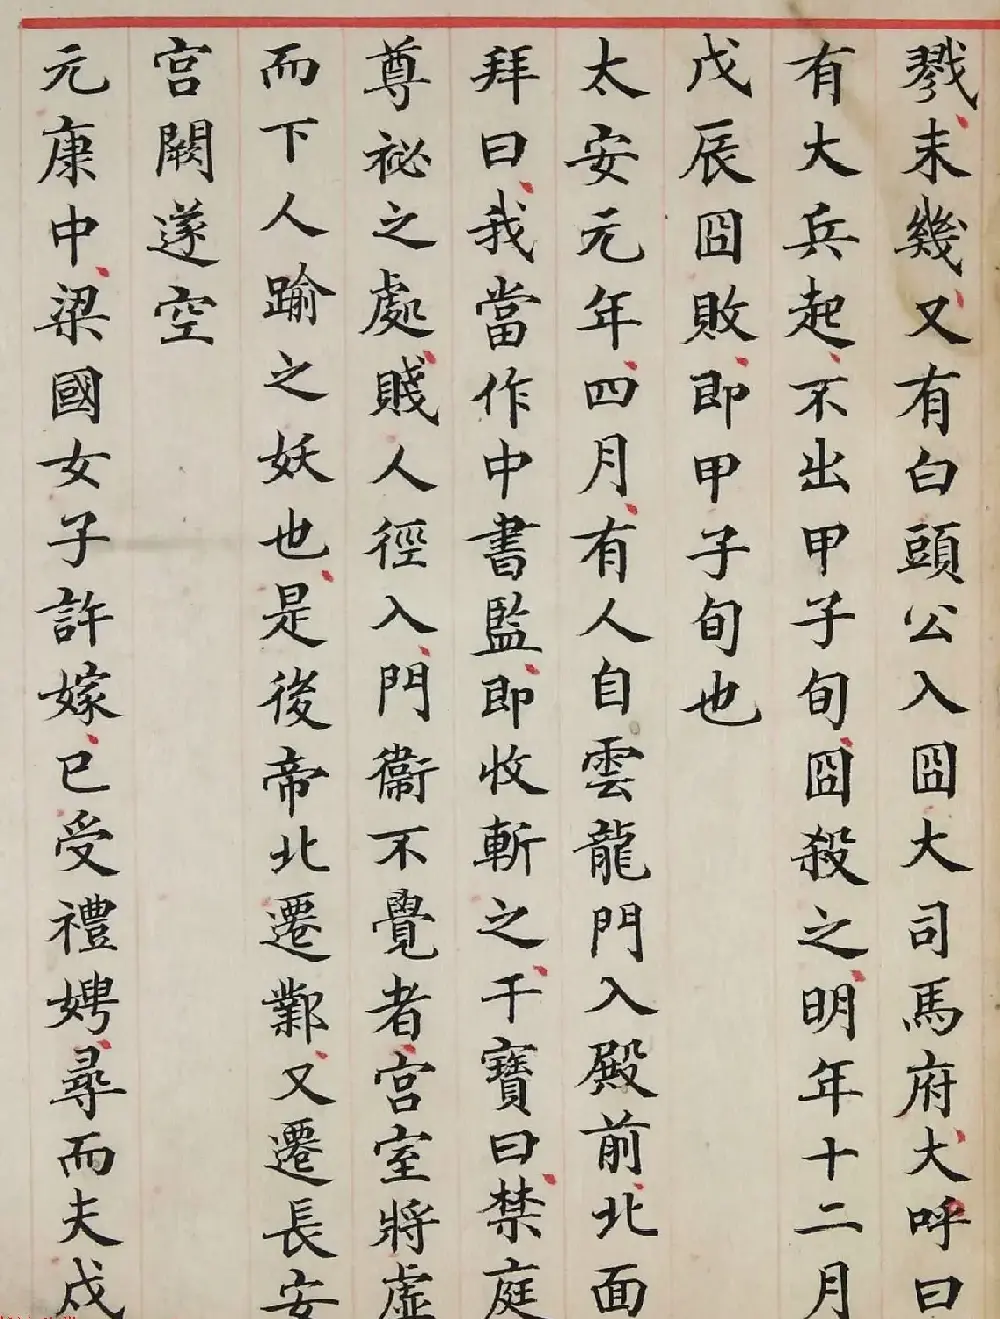 戮、末幾、又有白頭公入囧大司馬府、大呼曰
有大兵起、不出甲子旬、囧殺之、明年十二月
戊辰囧敗、即甲子旬也
太安元年、四月、有人自雲龍門入殿前、北面
拜曰、我當作中書監、即收斬之、干寶曰、禁庭
尊祕之處、賤人徑入、門衞不覺者、宮室將虛
而下人踰之妖也、是後帝北遷鄴、又遷長安
宮闕遂空
元康中、梁國女子許嫁、已受禮娉、尋而夫戍